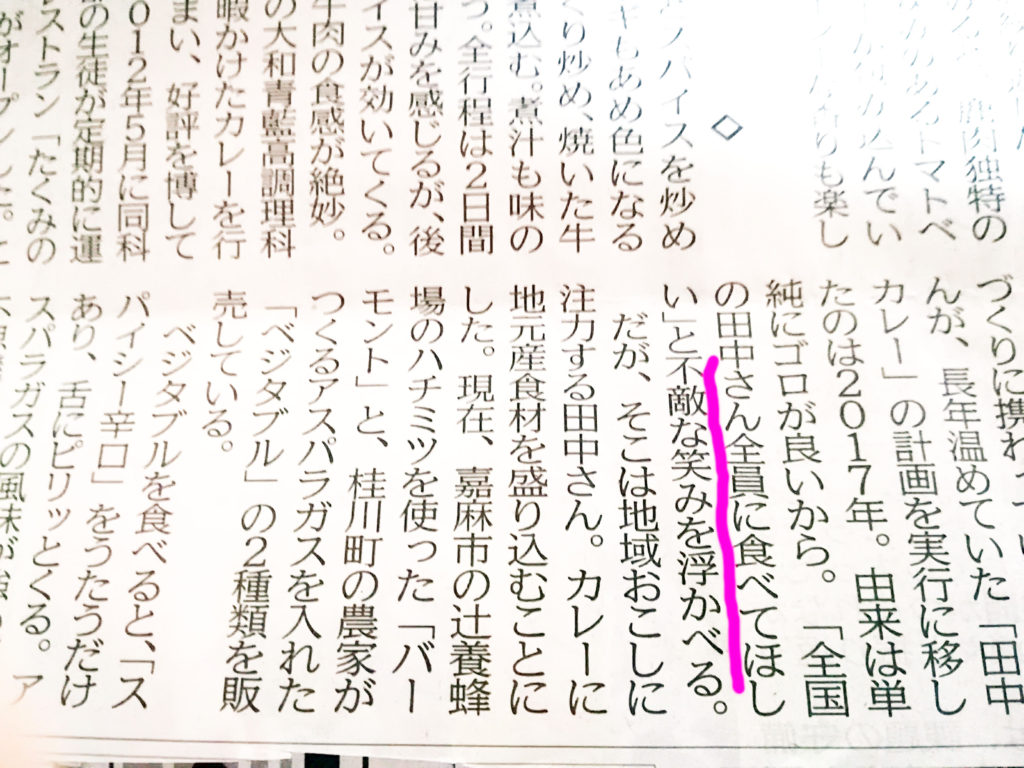 鹿肉独特の
のあるトマトベ
込んでい
りも楽し
◇
スパイスを炒め
ギもあめ色になる
り炒め、焼いた牛
煮込む。煮汁も味の
つ。全行程は2日間
甘みを感じるが、後
イスが効いてくる。
牛肉の食感が絶妙。
の大和青藍高調理科
暇かけたカレーを行
まい、好評を博して
012年5月に同科
の生徒が定期的に運
ストラン「たくみの
がオープンした。
づくりに携わ
んが、長年温めていた「田中
カレー」の計画を実行に移し
たのは2017年。由来は単
純にゴロが良いから。「全国
の田中さん全員に食べてほし
い」と不敵な笑みを浮かべる。
だが、そこは地域おこしに
注力する田中さん。カレーに
地元産食材を盛り込むことに
した。現在、嘉麻市の辻養蜂
場のハチミツを使った「バー
モント」と、桂川町の農家が
つくるアスパラガスを入れた
「ベジタブル」の2種類を販
売している。
ベジタブルを食べると、「ス
パイシー辛口」をうたうだけ
あり、舌にピリッとくる。ア
スパラガスの風味が強